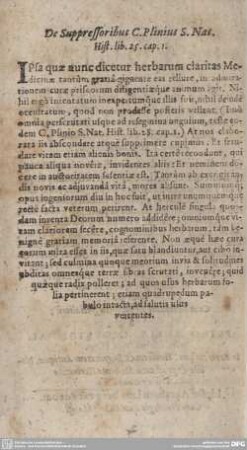 De Suppressoribus C. Plinius S. Nat.
Hist. lib. 25. cap. 1.
IPsa quæ nunc dicetur herbarum claritas Me-
dicinæ tantùm gratiâ gignente eas tellure, in admira-
tionem curæ priscorum diligentiæque animum agit. Ni-
hil ergò intentatum inexpertumque illis fuit, nihil deinde
occultatum, quod non prodesse posteris vellent. (
perscrutati usque ad unguium, teste eo-
dem C. Plinio S. Nat. Hist. lib. 28. cap. 1.) At nos elabora-
ta iis abscondere atque supprimere cupimus, & frau-
dare vitam etiam alienis bonis. Ita certè recondunt, qui
pauca aliqua novêre, invidentes aliis: Et neminem do-
cere in auctoritatem scientiæ est. Tantùm ab excogitan-
dis novis ac adjuvandâ vitâ, mores absunt. Summumq́;
opus ingeniorum diu in hoc fuit, ut intra unumquemque
rectè facta veterum perirent. At herculè singula quos-
dam inventa Deorum numero addidêre; omniumque vi-
tam clariorem fecêre, cognominibus herbarum, tam be-
nignè gratiam memoriâ referente. Non æquè hæc cura
eorum mira esset in iis, quæ satu blandiuntur, aut cibo in-
vitant; sed culmina quoque montium invia & solitudines
abditas omnesque terræ fibras scrutati, invenêre, quid
quæque radix polleret; ad quos usus herbarum fo-
lia pertinerent; etiam quadrupedum pa-
bulo intacta, ad salutis usus
vertentes.